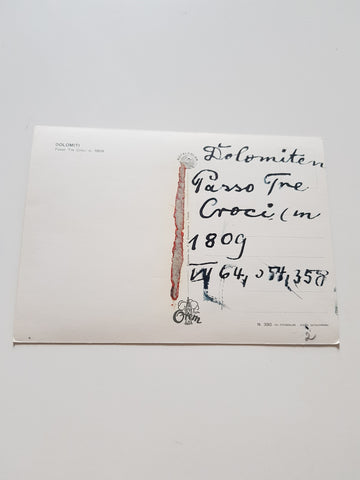 DOLOMITI
Passo Tre Croci m. 1809
Dolomiten
Passo Tre
Croci (m
1809
VII 64, 354, 358
N. 390
2